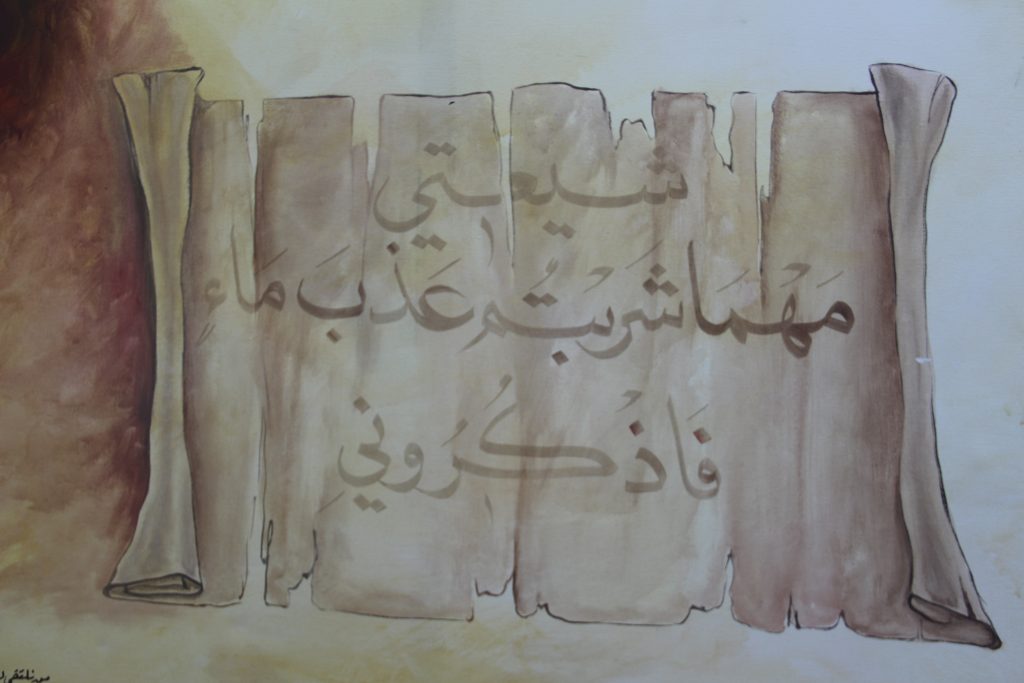 شيعتي
مَهْمَا شَرِبتُم عَذبَ مَاءٍ
فَاذْكُرُونِي